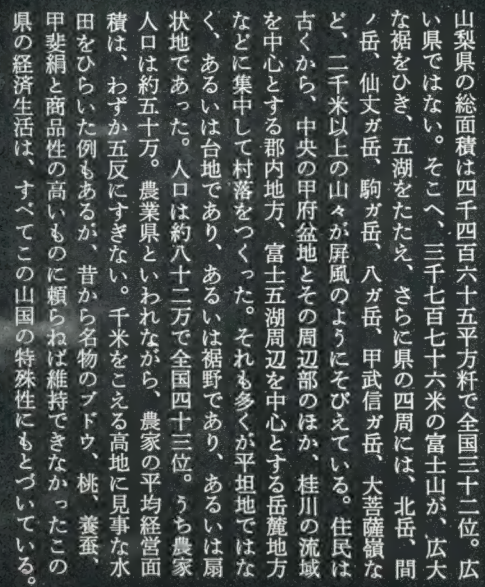 山梨県の総面積は四千四百六十五平方粁で全国三十二位。広
い県ではない。そこへ、三千七百七十六米の富士山が、広大
な裾をひき、五湖をたたえ、さらに県の四周には、北岳、間
ノ岳、仙丈ガ岳、駒ガ岳、八ガ岳、甲武信ガ岳、大菩薩嶺な
ど、二千米以上の山々が屏風のようにそびえている。住民は
古くから、中央の甲府盆地とその周辺部のほか、桂川の流域
を中心とする郡内地方、富士五湖周辺を中心とする岳麓地方
などに集中して村落をつくった。それも多くが平坦地ではな
く、あるいは台地であり、あるいは裾野であり、あるいは扇
状地であった。人口は約八十二万で全国四十三位。うち農家
人口は約五十万。農業県といわれながら、農家の平均経営面
積は、わずか五反にすぎない。千米をこえる高地に見事な水
田をひらいた例もあるが、昔から名物のブドウ、桃、養蚕、
甲斐絹と商品性の高いものに頼らねば維持できなかったこの
県の経済生活は、すべてこの山国の特殊性にもとづいている。